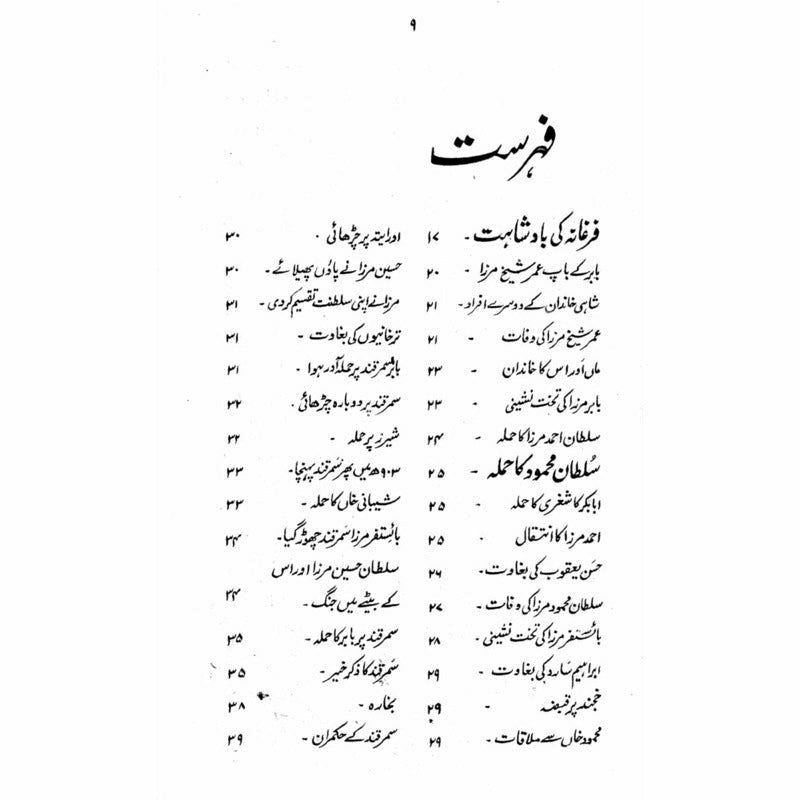 ۹
فہرست
فرغانہ کی بادشاہت - ۱۷
بابر کے باپ عمر شیخ مرزا - ۲۰
شاہی خاندان کے دوسرے افراد - ۲۱
عمر شیخ مرزا کی وفات - ۲۱
ماں اور اس کا خاندان - ۲۳
بابر مرزا کی تخت نشینی - ۲۳
سلطان احمد مرزا کا حملہ - ۲۴
سُلطان محمود کا حملہ - ۲۵
ابابکر کاشغری کا حملہ - ۲۵
احمد مرزا کا انتقال - ۲۵
حسن یعقوب کی بغاوت - ۲۶
سلطان محمود مرزا کی وفات - ۲۷
بائسنغر مرزا کی تخت نشینی - ۲۸
ابراہیم سارو کی بغاوت - ۲۹
خجند پر قبضہ - ۲۹
محمود خاں سے ملاقات - ۲۹
اوراتیہ پر چڑھائی - ۳۰
حسین مرزا نے پاؤں پھیلائے - ۳۰
مرزا نے اپنی سلطنت تقسیم کر دی - ۳۱
ترخانیوں کی بغاوت - ۳۱
بابر سمرقند پر حملہ آور ہوا - ۳۱
سمرقند پر دوبارہ چڑھائی - ۳۲
شیرز پر حملہ - ۳۲
۹۰۳ھ میں پھر سمرقند پہنچا - ۳۳
شیبانی خاں کا حملہ - ۳۳
بائسنغر مرزا سمرقند چھوڑ گیا - ۳۴
سلطان حسین مرزا اور اس
کے بیٹے میں جنگ - ۳۴
سمرقند پر بابر کا حملہ - ۳۵
سمرقند کا ذکر خیر - ۳۵
بخارہ - ۳۸
سمرقند کے حکمران - ۳۹